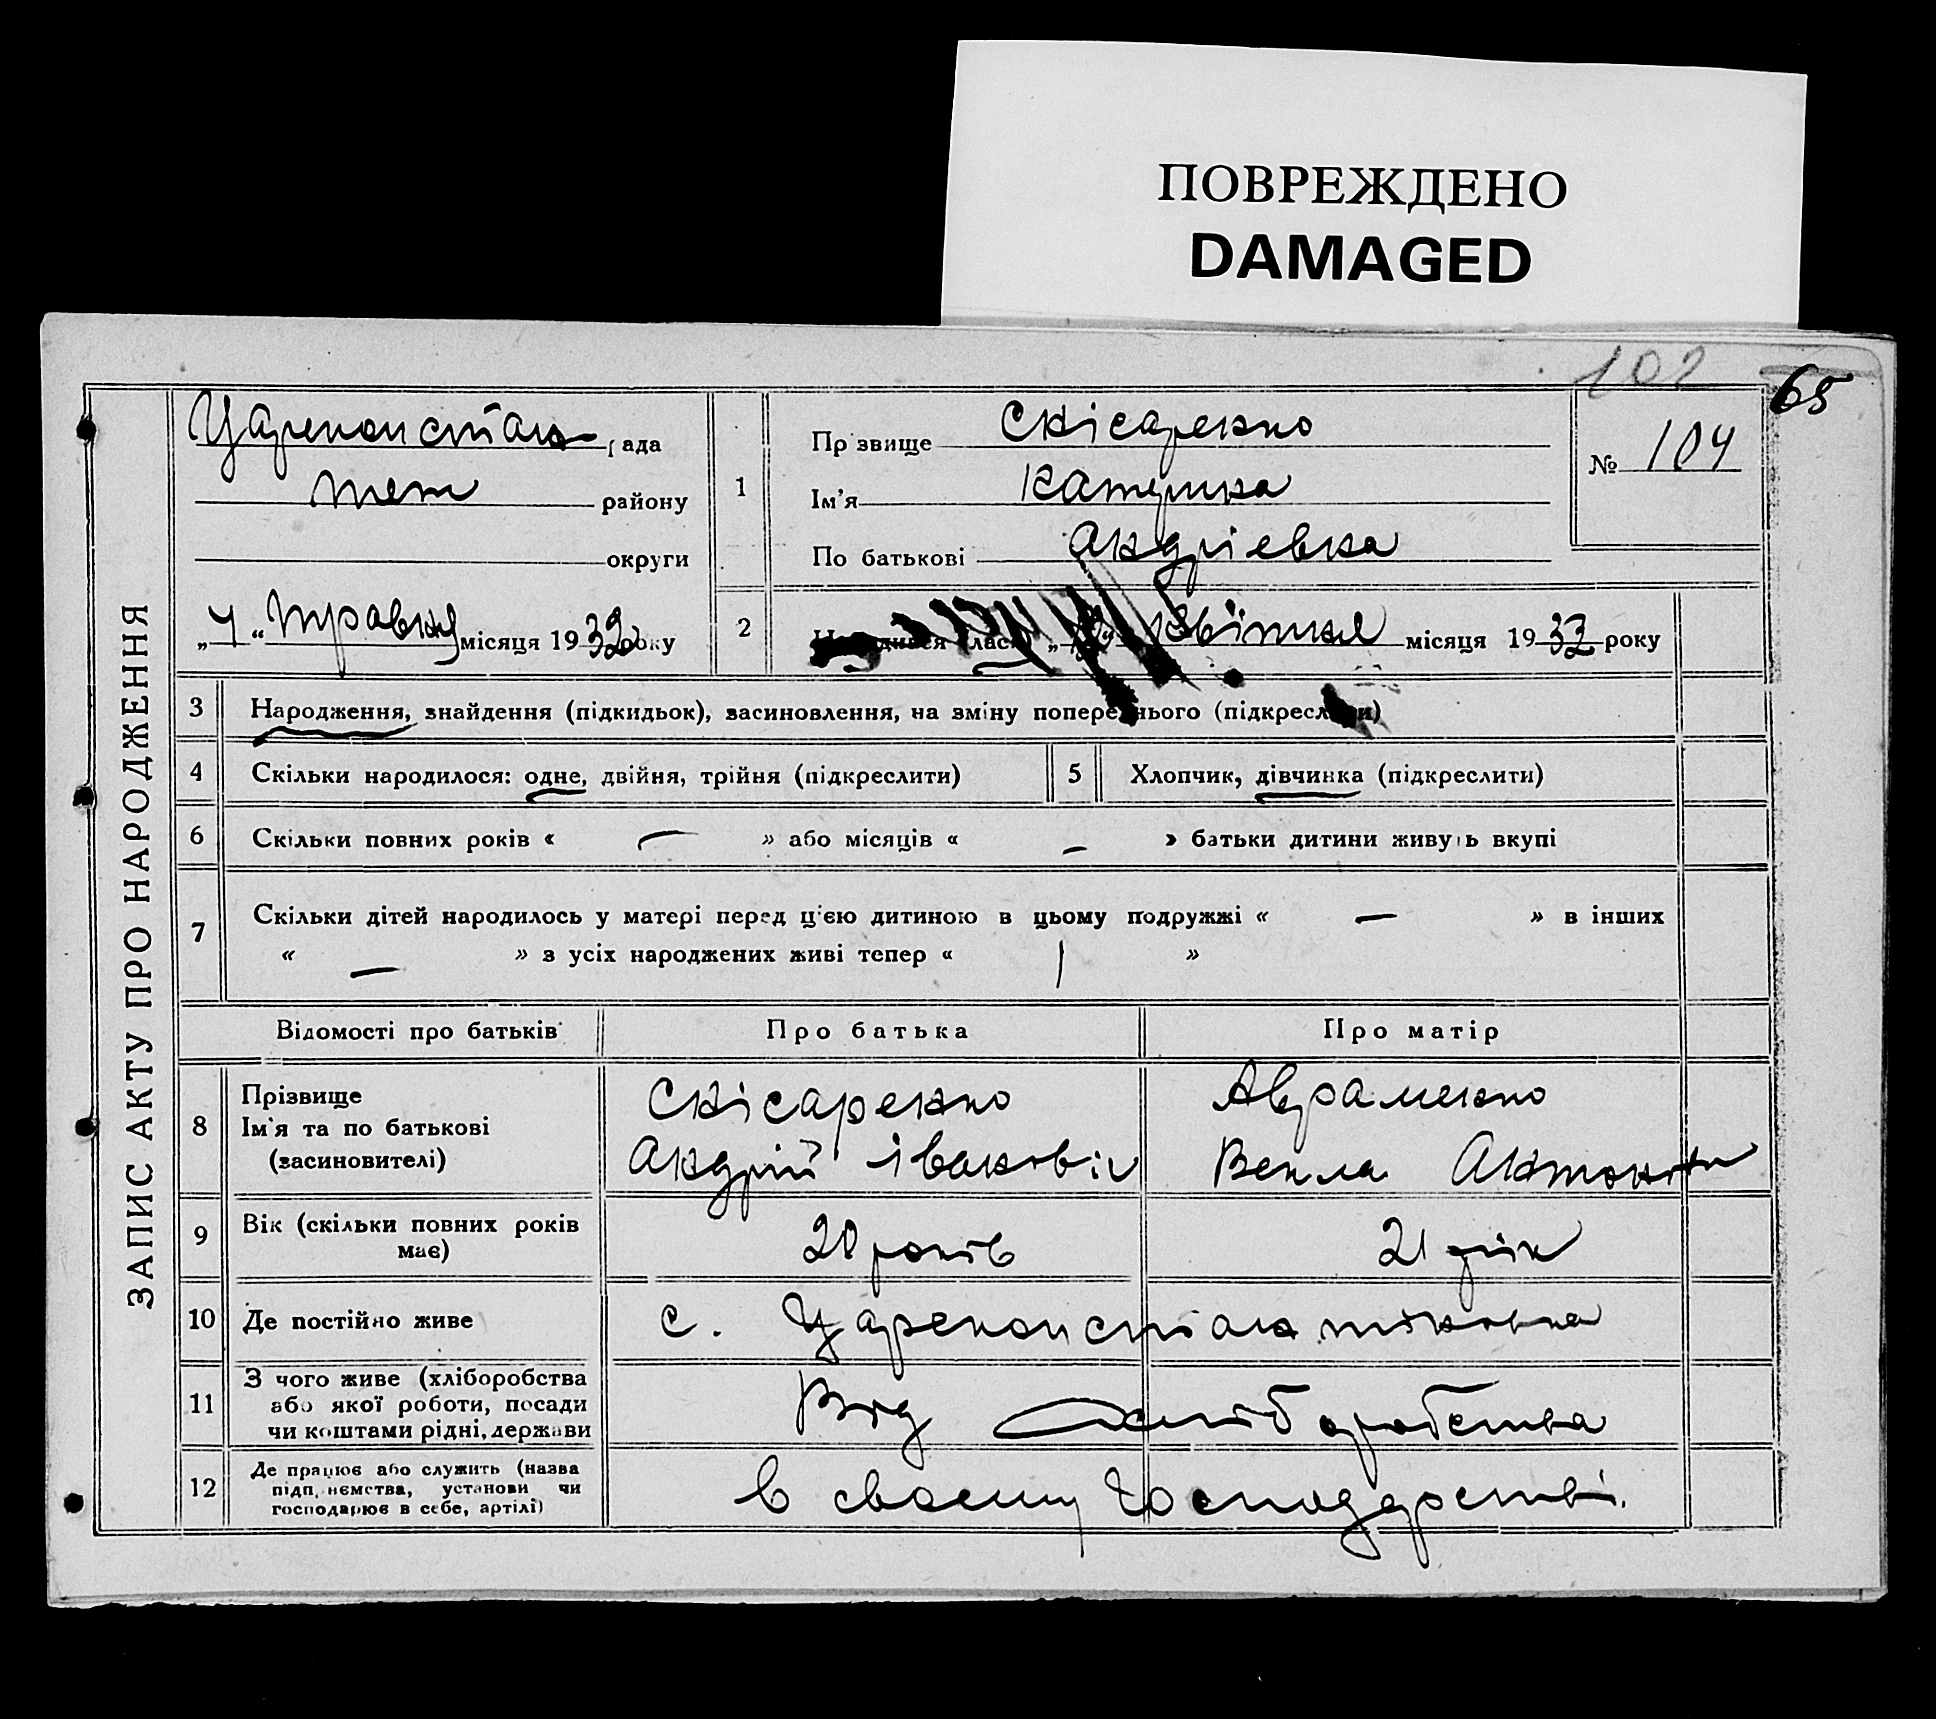 ПОВРЕЖДЕНО
DAMAGED
102
65
ЗАПИС АКТУ ПРО НАРОДЖЕННЯ
Цареконстан рада
району
округи
„4“ травня місяця 1932 року
1
Прізвище Скісаренко
Ім'я Катерина
По батькові Андріевна
№ 104
2
Народився (лась) „ квітня місяця 1932 року
3 Народження, знайдення (підкидьок), засиновлення, на зміну попереднього (підкреслити)
4 Скільки народилося: одне, двійня, трійня (підкреслити)
5 Хлопчик, дівчинка (підкреслити)
6 Скільки повних років « — » або місяців « — » батьки дитини живуть вкупі
7 Скільки дітей народилось у матері перед цією дитиною в цьому подружжі « — » в інших
« — » з усіх народжених живі тепер « 1 »
Відомості про батьків Про батька Про матір
8
Прізвище
Ім'я та по батькові
(засиновителі)
Скісаренко
Андрій Іванович
Авраменко
Векла Антонівн
9
Вік (скільки повних років
має)
20 років
21 рік
10 Де постійно живе
с. Цареконстантиновка
11
З чого живе (хліборобства
або якої роботи, посади
чи коштами рідні, держави
Від хліборобства
12
Де працює або служить (назва
підприємства, установи чи
господарює в себе, артілі)
в своему господарстві.